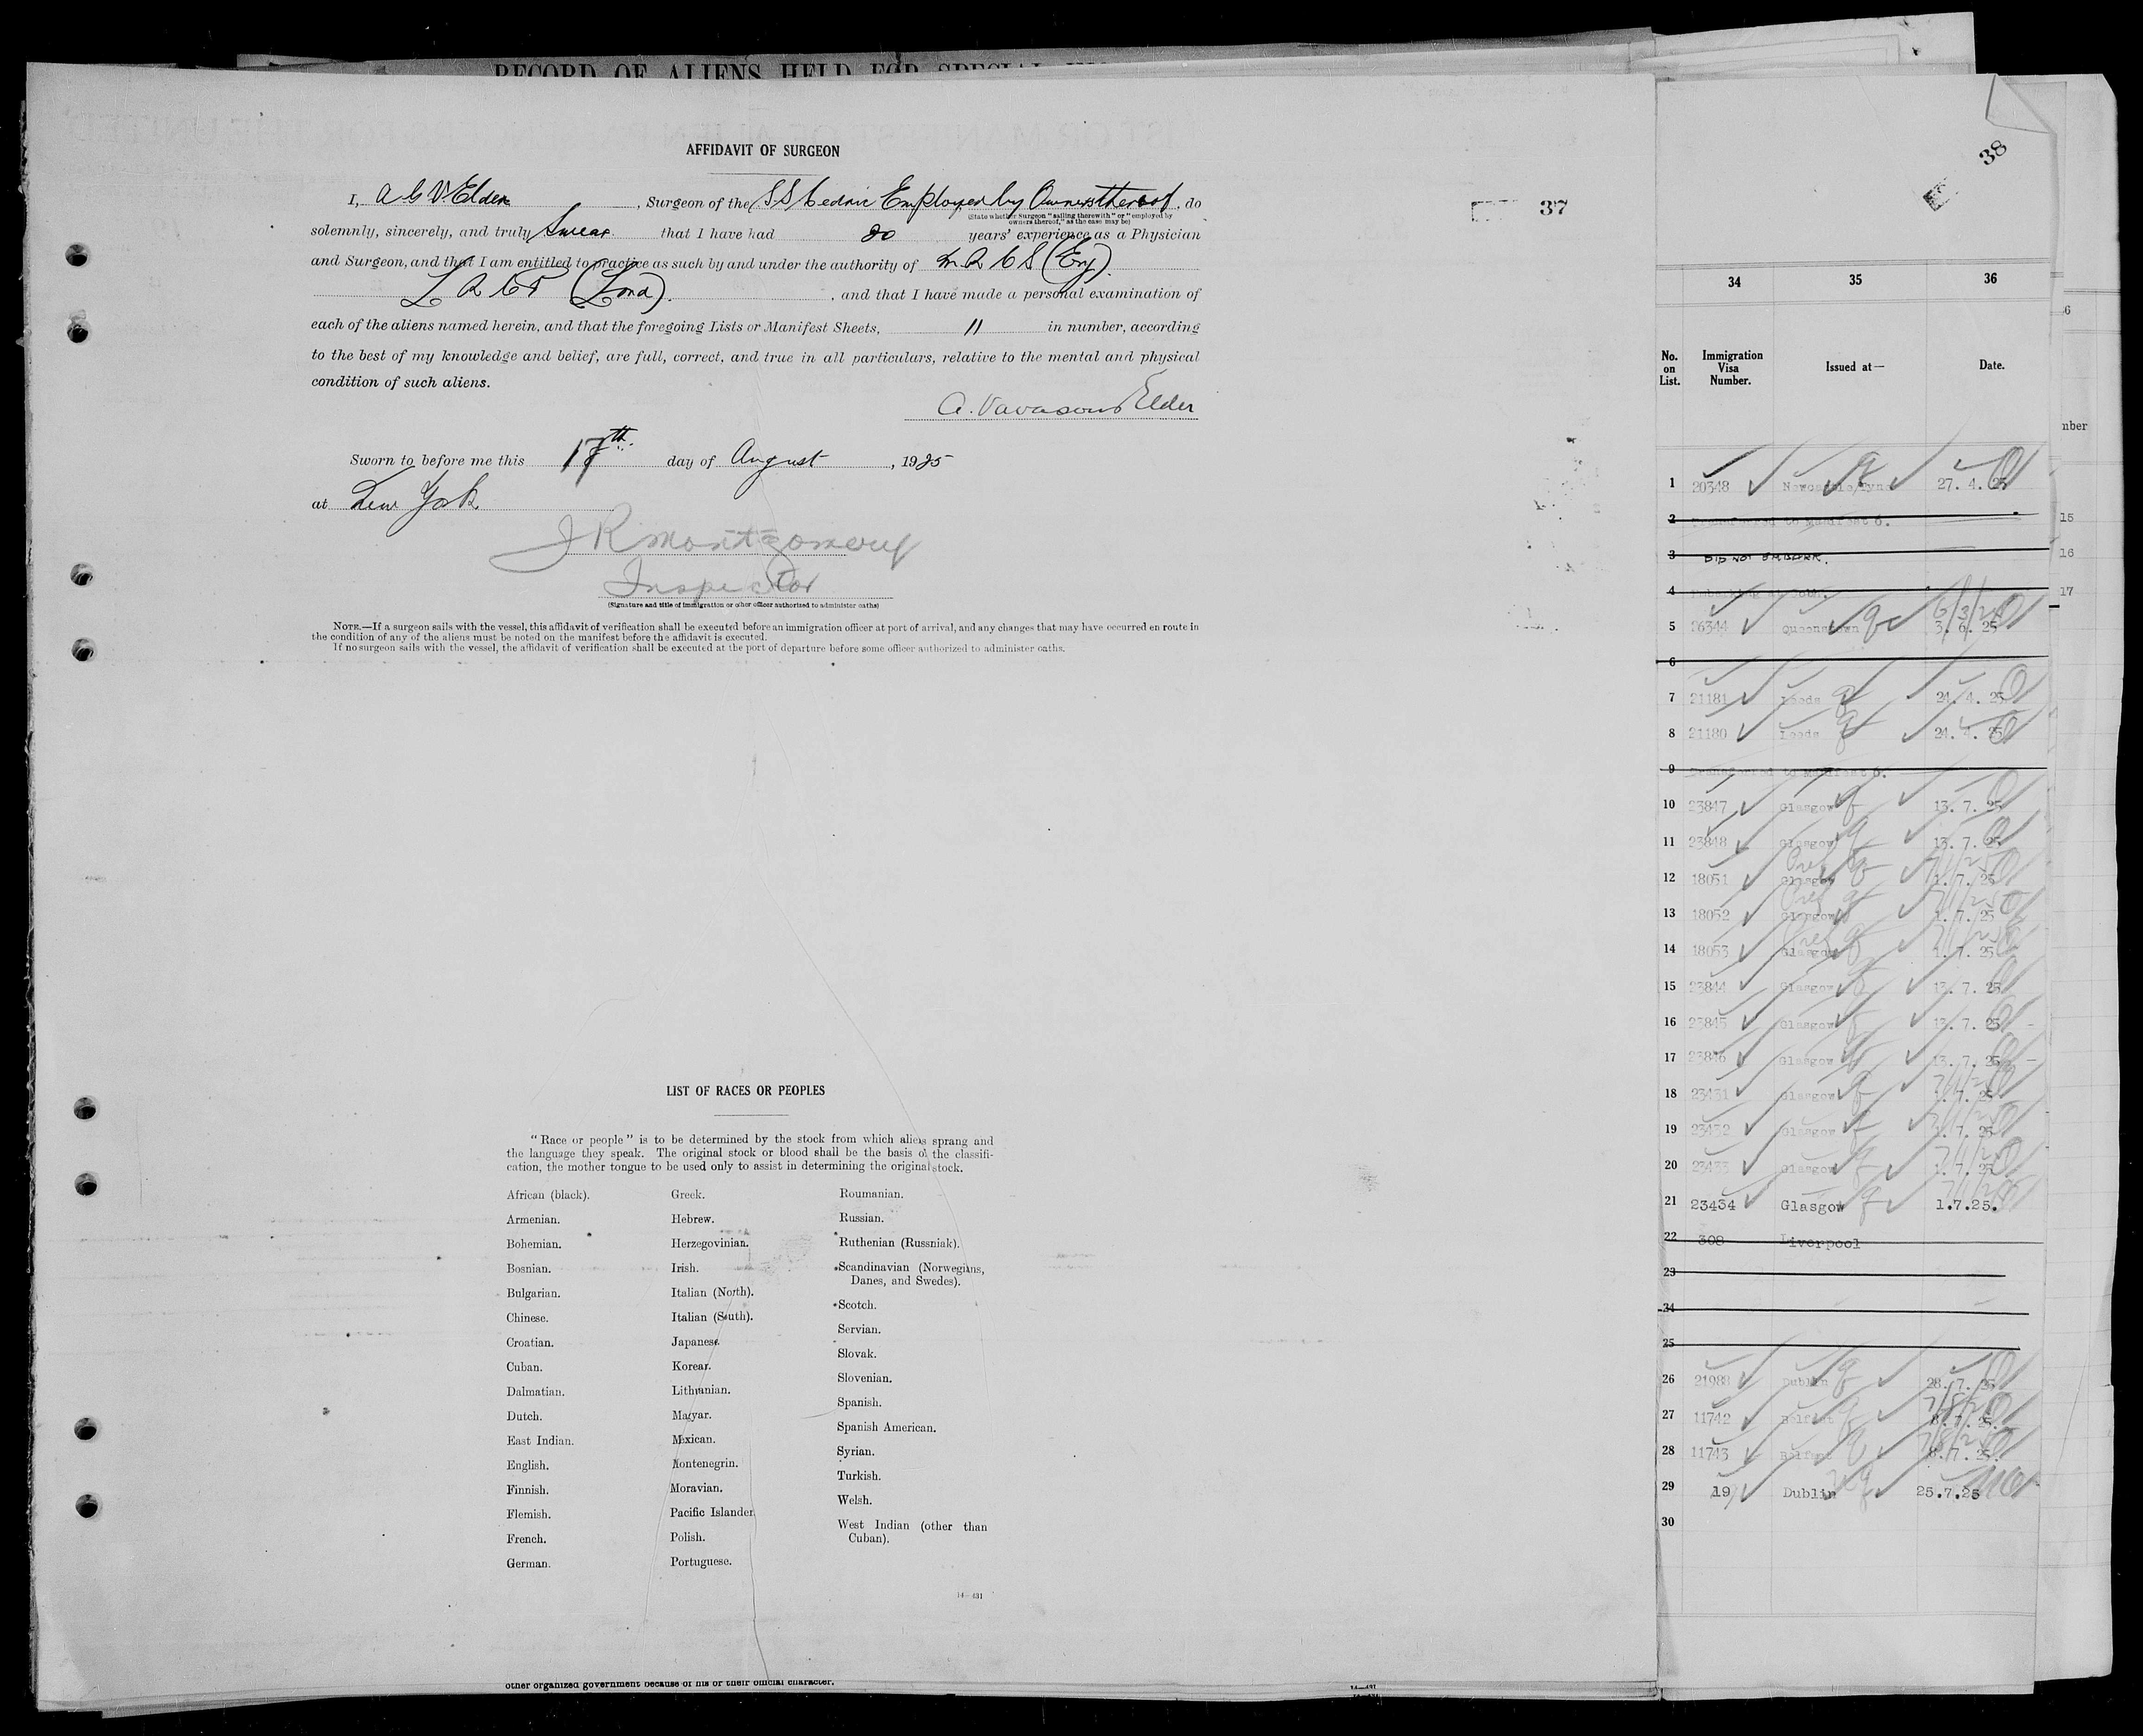 RECORD OF ALIENS HELD FOR SPECIAL
AFFIDAVIT OF SURGEON
I, A G V. Elder, Surgeon of the SS Cedric Employed by Owners thereof, do
(State whether Surgeon "sailing therewith" or "employed by
owners thereof," as the case may be)
solemnly, sincerely, and truly Swear that I have had 20 years' experience as a Physician
and Surgeon, and that I am entitled to practice as such by and under the authority of M R C S (Eng).
L R C P (Lond). , and that I have made a personal examination of
each of the aliens named herein, and that the foregoing Lists or Manifest Sheets, 11 in number, according
to the best of my knowledge and belief, are full, correct, and true in all particulars, relative to the mental and physical
condition of such aliens.
A. Vavasour Elder
Sworn to before me this 17th day of August, 1925
at New York
J R Montgomery
Inspector
(Signature and title of immigration or other officer authorized to administer oaths)
NOTE.—If a surgeon sails with the vessel, this affidavit of verification shall be executed before an immigration officer at port of arrival, and any changes that may have occurred en route in
the condition of any of the aliens must be noted on the manifest before the affidavit is executed.
If no surgeon sails with the vessel, the affidavit of verification shall be executed at the port of departure before some officer authorized to administer oaths.
37
LIST OF RACES OR PEOPLES
"Race or people" is to be determined by the stock from which aliens sprang and
the language they speak. The original stock or blood shall be the basis of the classifi-
cation, the mother tongue to be used only to assist in determining the original stock.
African (black).
Armenian.
Bohemian.
Bosnian.
Bulgarian.
Chinese.
Croatian.
Cuban.
Dalmatian.
Dutch.
East Indian.
English.
Finnish.
Flemish.
French.
German.
Greek.
Hebrew.
Herzegovinian.
Irish.
Italian (North).
Italian (South).
Japanese.
Korean.
Lithuanian.
Magyar.
Mexican.
Montenegrin.
Moravian.
Pacific Islander.
Polish.
Portuguese.
Roumanian.
Russian.
Ruthenian (Russniak).
Scandinavian (Norwegians,
Danes, and Swedes).
Scotch.
Servian.
Slovak.
Slovenian.
Spanish.
Spanish American.
Syrian.
Turkish.
Welsh.
West Indian (other than
Cuban).
14—431
other organized government because of his or their official character.
38
34 35 36
No. on List. Immigration Visa Number. Issued at— Date.
1 20348 Newcastle/Tyne 27. 4. 25
2 Transferred to Manifest 6.
3 DID NOT EMBARK.
4
5 26344 Queenstown 3. 6. 25 6/3/25
6
7 21181 Leeds 24. 4. 25
8 21180 Leeds 24. 4. 25
9 Transferred to Manifest 6.
10 23847 Glasgow 13. 7. 25
11 23848 Glasgow 13. 7. 25
12 18051 Glasgow 1. 7. 25 7/1/25
13 18052 Glasgow 1. 7. 25 7/1/25
14 18053 Glasgow 1. 7. 25 7/1/25
15 23844 Glasgow 13. 7. 25
16 23845 Glasgow 13. 7. 25
17 23846 Glasgow 13. 7. 25
18 23431 Glasgow 1. 7. 25 7/1/25
19 23432 Glasgow 1. 7. 25 7/1/25
20 23433 Glasgow 1. 7. 25 7/1/25
21 23434 Glasgow 1.7.25. 7/1/25
22 308 Liverpool
23
24
25
26 21988 Dublin 28. 7. 25
27 11742 Belfast 8. 7. 25. 7/8/25
28 11743 Belfast 8. 7. 25. 7/8/25
29 19 Dublin 25.7.25
30
nber
15
16
17